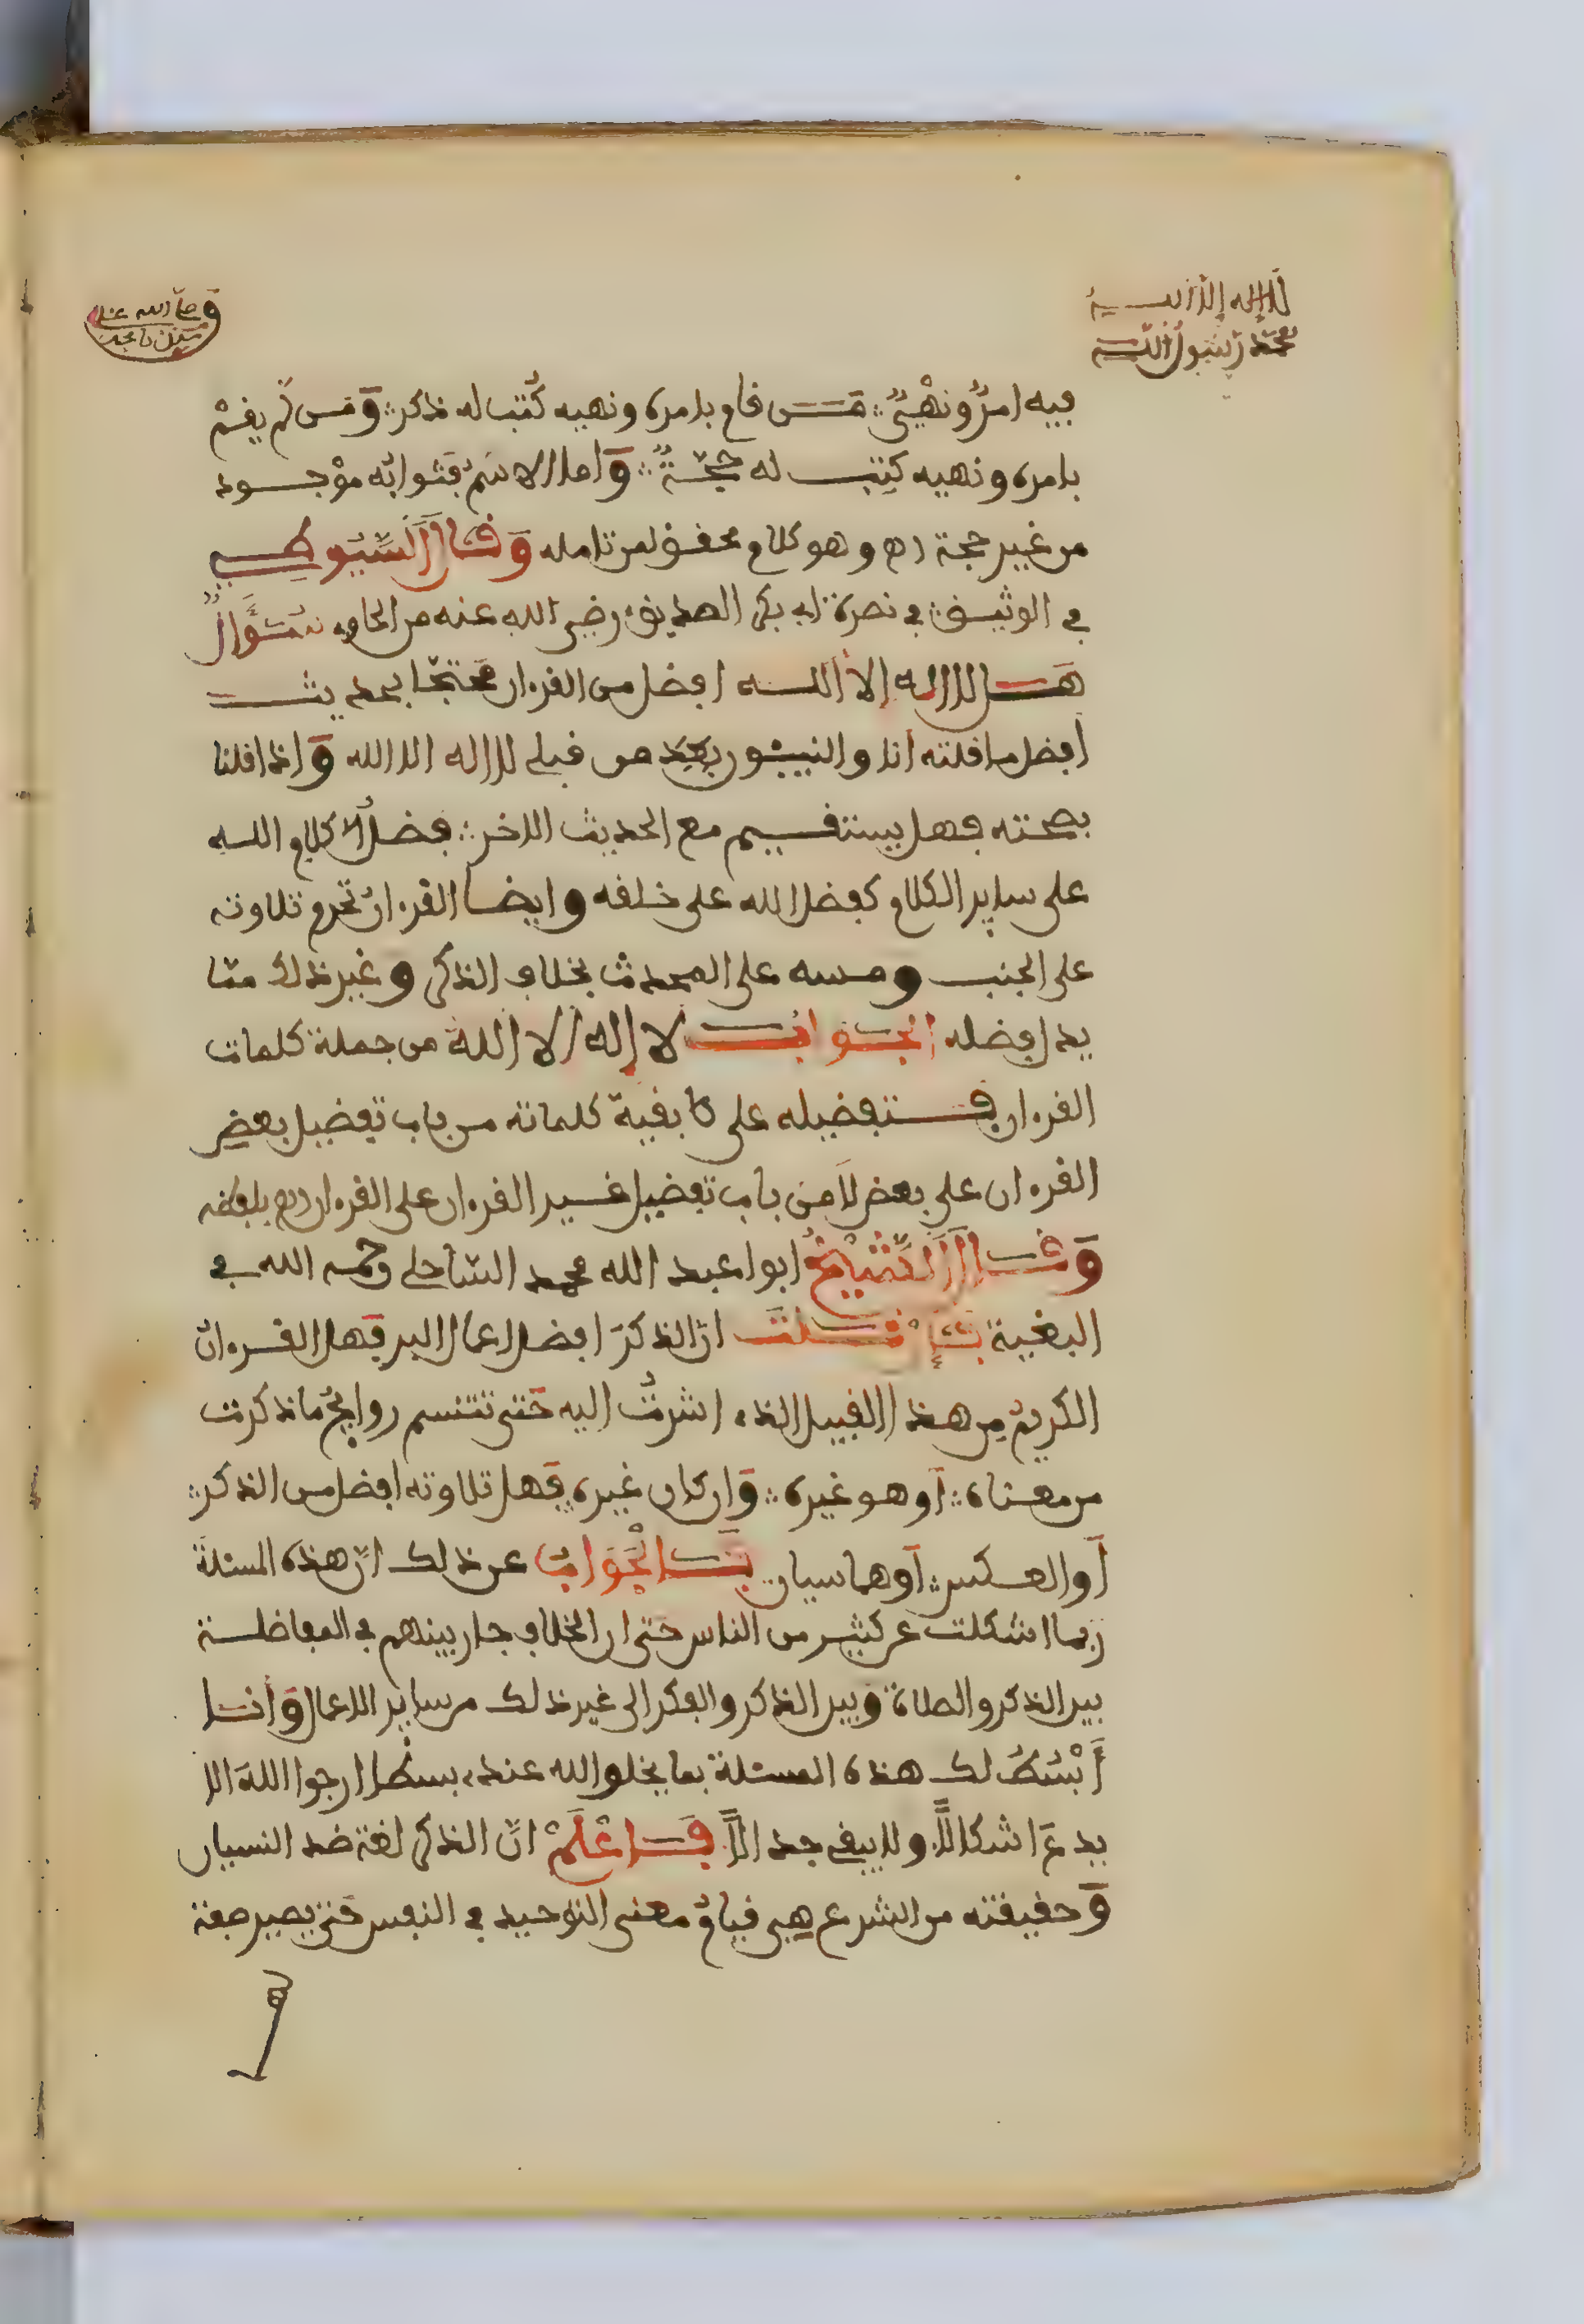 لا إله إلا الله
محمد رسول الله
وصلى الله على
فيه امرٌ ونهيٌ؛ فمن قام بامره ونهيه كُتب له ذكر؛ وَمن لم يقمْ
بامره ونهيه كتب له حجّةٌ؛ وَاما الاسم فثوابُه موْجود
من غير حجة اهـ وهو كلام محقق لمن تامله وَقال السّيوطي
في الوثيق في نصرة ابي بكر الصديق رضي الله عنه من الحاوي سُؤَالٌ
هَل لا اله إلا الله افضل من القرءان محتجّا بحديث
أفضل ما قلته أنا والنبيئون بعد من قبلي لا اله الا الله وَاذا قلنا
بصحته فهل يستقيم مع الحديث الاخر؛ فضلُ كلام الله
على ساير الكلام كفضل الله على خلقه وايضا القرءانُ تحرم تلاوته
على الجنب ومسه على المحدث بخلاف الذكر وغير ذلك ممّا
يد افضله الجَوابُ لا إله إلا اللهُ من جملة كلمات
القرءان فتفضيله على بقية كلماته من باب تفضيل بعض
القرءان على بعض لاَ من باب تفضيل غير القرءان على القرءان اهـ بلفظه
وَقال الشّيْخُ ابوا عبد الله محمد السّاحلي رحمه الله في
البغية فَإِنْ قلتَ انّ الذكرَ افضل اعمال البر فَهل القرءانُ
الكريمُ مِن هذا القبيل الذي اشرتُ اليه حَتى تتنسم روايحُ ما ذكرت
من معناه؛ أو هو غيره؛ وَان كان غيره فهل تلاوته افضل من الذكر؛
أو العكس؛ أو هما سيان فَالجَوابُ عن ذلك انّ هذه المسئلةَ
ربما اشكلت عن كثير من الناس حتى ان الخلاف جار بينهم في المفاضلة
بين الذكر والصلاة وَبين الذكر والفكر الى غير ذلك من ساير الاعمال وَأنا
أَبْسُطُ لك هذه المسئلة بما يخلو الله عنده بسطا ارجوا اللهَ الا
يدعَ اشكالاً ولا يبقي جدالاً فَاعْلَمْ انّ الذكر لغة ضد النسيان
وَحقيقته من الشرع هي قيامُ معنى التوحيد في النفس حَتى يصير صفة